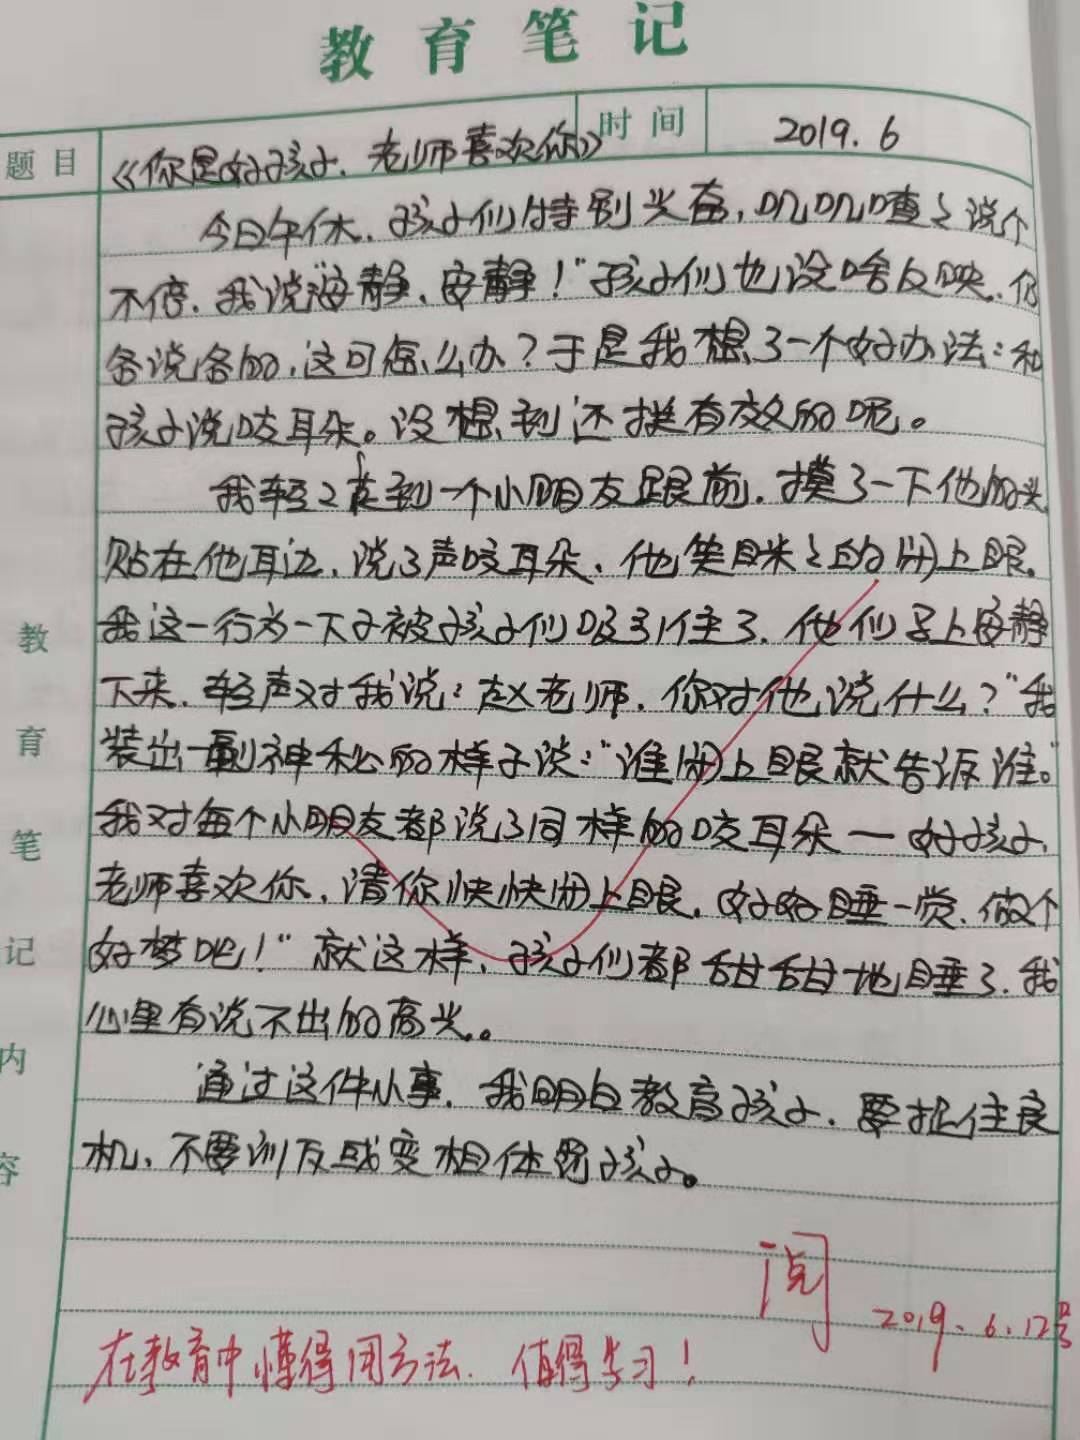 教育笔记
题目 《你是好孩子，老师喜欢你》 时间 2019.6
今日午休，孩子们特别兴奋，叽叽喳々说个
不停，我说"安静，安静！"孩子们也没啥反映，仍
各说各的，这可怎么办？于是我想了一个好办法：和
孩子说咬耳朵。没想到还挺有效的呢。
我轻々走到一个小朋友跟前，摸了一下他的头
贴在他耳边，说了声咬耳朵，他笑眯々的闭上眼。
我这一行为一下子被孩子们吸引住了，他们马上安静
下来，轻声对我说：赵老师，你对他说什么？"我
装出一副神秘的样子说："谁闭上眼就告诉谁。"
我对每个小朋友都说了同样的咬耳朵一好孩子，
老师喜欢你，请你快快闭上眼，好好睡一觉，做个
好梦吧！"就这样，孩子们都甜甜地睡了，我
心里有说不出的高兴。
通过这件小事，我明白教育孩子，要抓住良
机，不要训斥或变相体罚孩子。
教育笔记内容
阅
2019.6.12号
在教育中懂得用方法，值得学习！